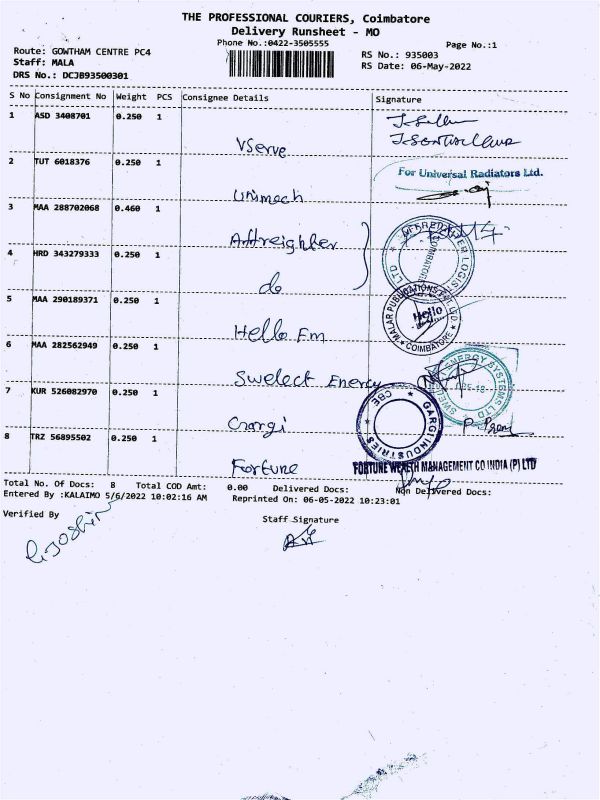 THE PROFESSIONAL COURIERS, Coimbatore
Delivery Runsheet - MO
Phone No.:0422-3505555
Page No.:1
Route: GOWTHAM CENTRE PC4
Staff: MALA
DRS No.: DCJB93500301
RS No.: 935003
RS Date: 06-May-2022
S No Consignment No Weight PCS Consignee Details Signature
1 ASD 3408701 0.250 1
VServe
2 TUT 6018376 0.250 1
For Universal Radiators Ltd.
Unimech
3 MAA 288702068 0.460 1
4 HRD 343279333 0.250 1
do
5 MAA 290189371 0.250 1
MALAR PUBLICATIONS PVT LTD
Hello
COIMBATORE
Hello Fm
6 MAA 282562949 0.250 1
ENERGY SYSTEMS LTD
Swelect Energy
7 KUR 526082970 0.250 1
GARGI INDUSTRIES
CBE
Gargi
8 TRZ 56895502 0.250 1
Fortune
FORTUNE WEALTH MANAGEMENT CO INDIA (P) LTD
Total No. Of Docs: 8 Total COD Amt: 0.00 Delivered Docs: Non Delivered Docs:
Entered By :KALAIMO 5/6/2022 10:02:16 AM Reprinted On: 06-05-2022 10:23:01
Verified By
Staff Signature